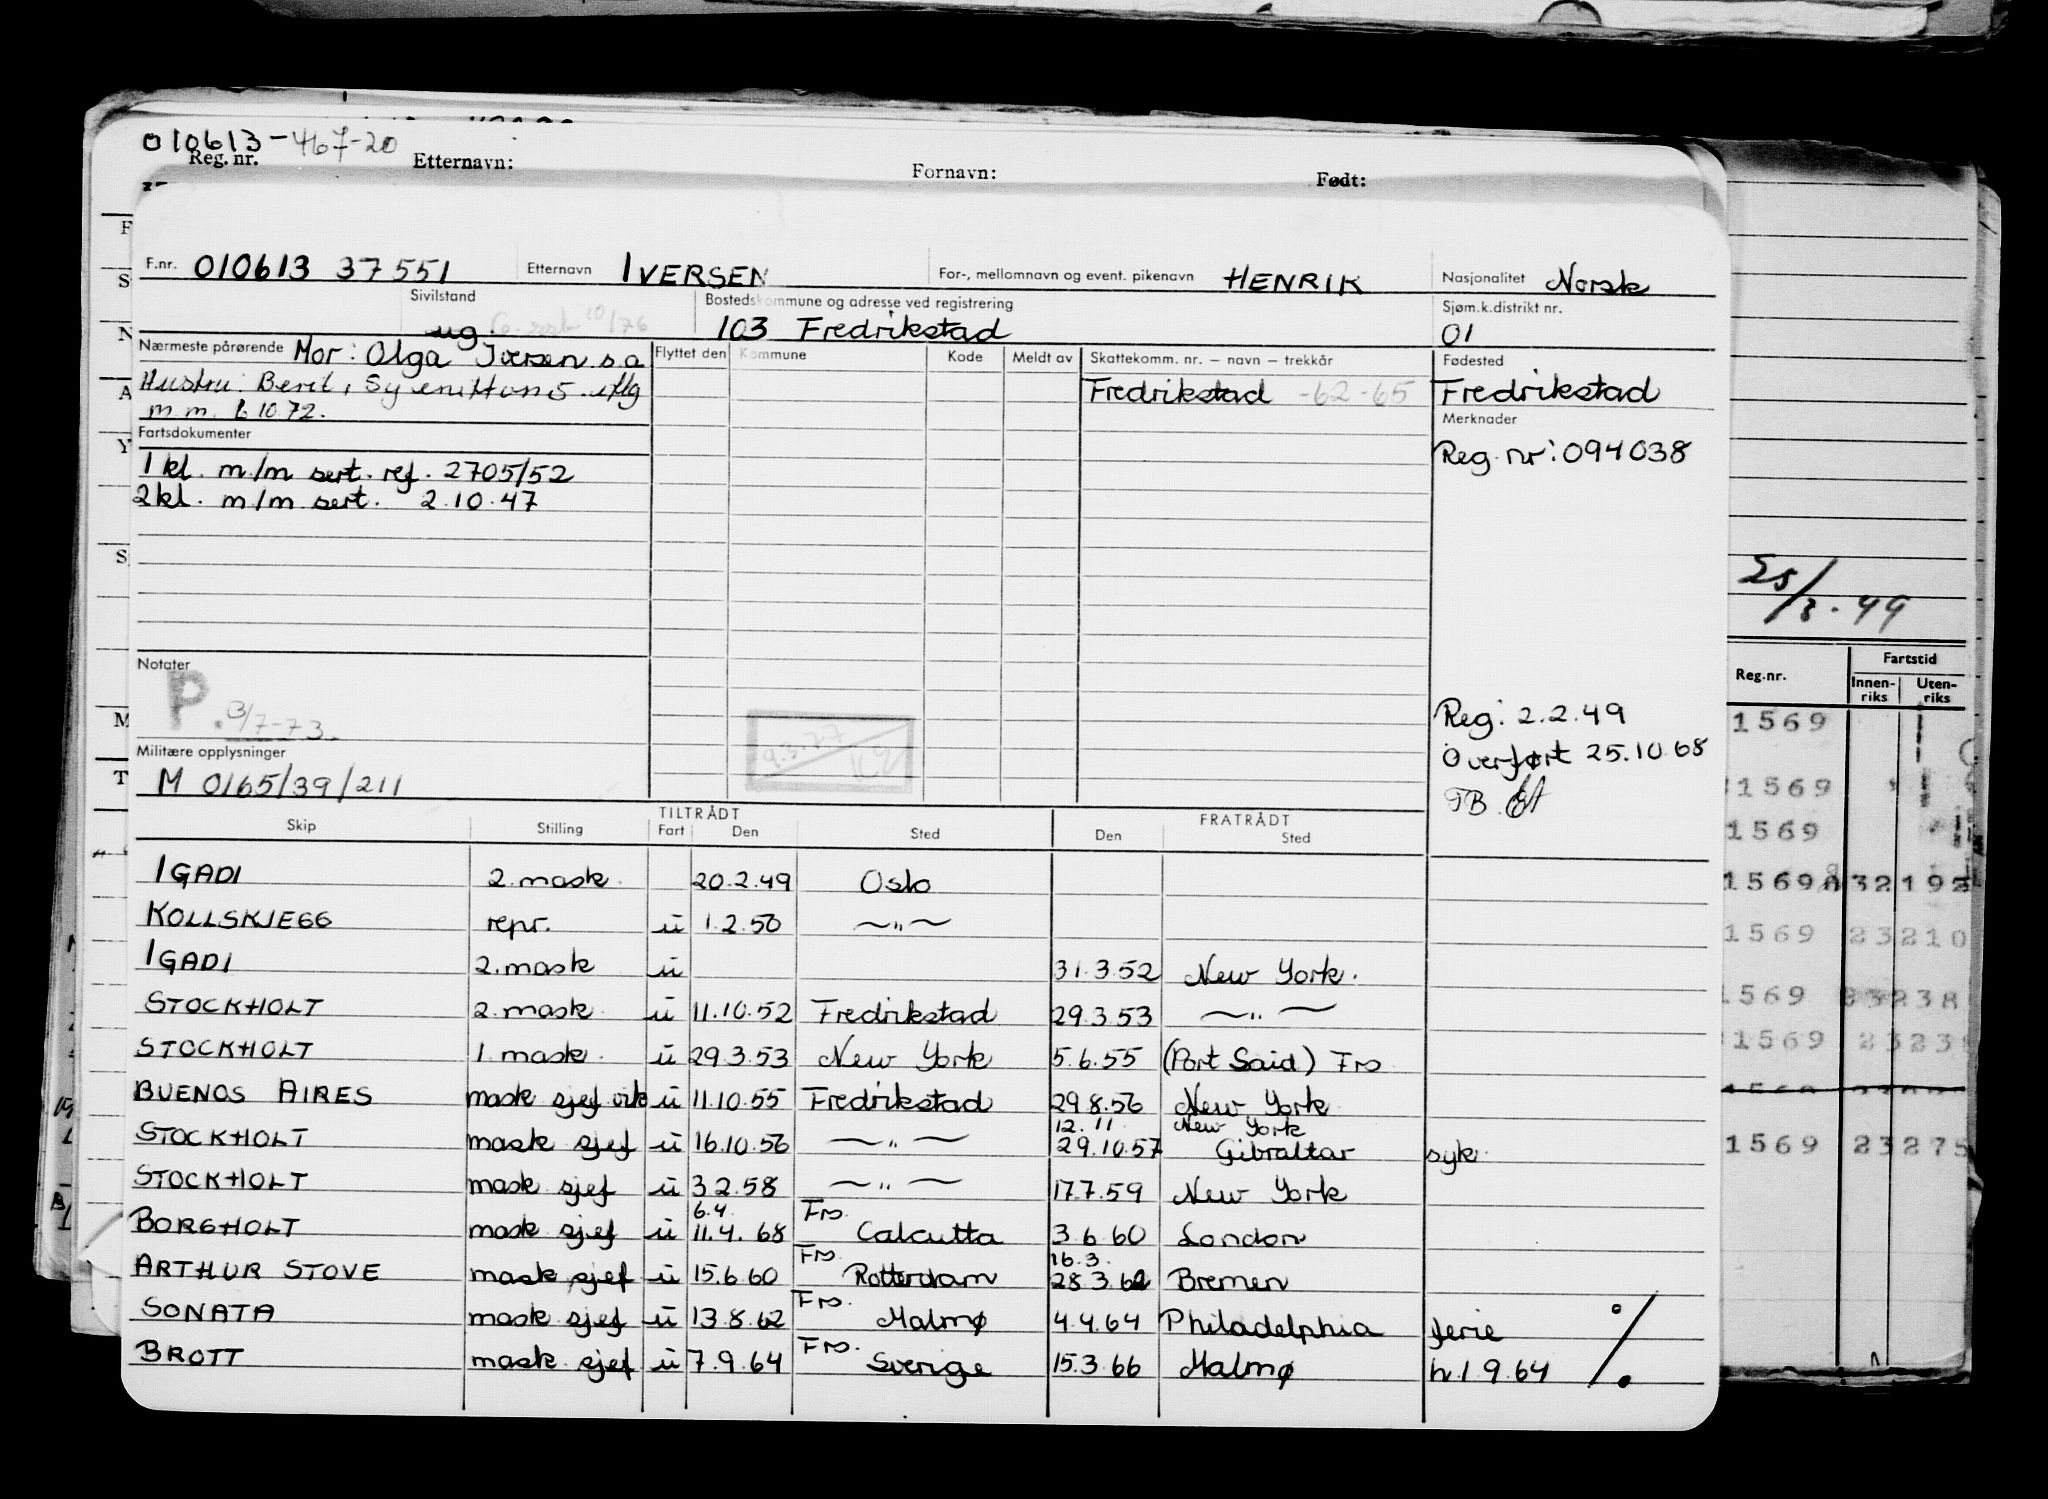 010613-467-20
Reg. nr. Etternavn: Fornavn: Født:
F.nr. 010613 37551 Etternavn IVERSEN For-, mellomnavn og event. pikenavn HENRIK Nasjonalitet Norsk
Sivilstand Bostedskommune og adresse ved registrering Sjøm.k.distrikt nr.
ug. 10/76 103 Fredrikstad 01
Nærmeste pårørende Mor: Olga Iversen s.a Flyttet den Kommune Kode Meldt av Skattekomm. nr. – navn – trekkår Fødested
Hustru: Berit, Fredrikstad -62-65 Fredrikstad
m.m. 6.10.72. Merknader
Fartsdokumenter
1 kl. m/m sert. ref. 2705/52 Reg. nr: 094038
2 kl. m/m sert. 2.10.47
25/3-49
Notater Reg.nr. Fartstid
Innen-riks Uten-riks
P. 3/7-73. Reg: 2.2.49 1569
9.3.77
Militære opplysninger Overført 25.10.68
M 0165/39/211 TB. 1569
TILTRÅDT FRATRÅDT
Skip Stilling Fart Den Sted Den Sted 1569
IGADI 2. mask. 20.2.49 Oslo 1569 32192
KOLLSKJEGG repr. u 1.2.50 —"— 1569 23210
IGADI 2. mask u 31.3.52 New York. 1569 238
STOCKHOLT 2. mask. u 11.10.52 Fredrikstad 29.3.53 —"— 1569 2323
STOCKHOLT 1. mask. u 29.3.53 New York 5.6.55 (Port Said) Frs
BUENOS AIRES mask sjef vik u 11.10.55 Fredrikstad 29.8.56 New York
12.11 New York
STOCKHOLT mask sjef u 16.10.56 —"— 29.10.57 Gibraltar syk. 1569 23275
STOCKHOLT mask sjef u 3.2.58 —"— 17.7.59 New York
6.4. Frs.
BORGHOLT mask sjef u 11.4.68 Calcutta 3.6.60 London
Frs. 16.3.
ARTHUR STOVE mask sjef u 15.6.60 Rotterdam 28.3.62 Bremen
Frs.
SONATA mask sjef u 13.8.62 Malmø 4.4.64 Philadelphia ferie
Frs.
BROTT mask. sjef u 7.9.64 Sverige 15.3.66 Malmø h.1.9.64 %